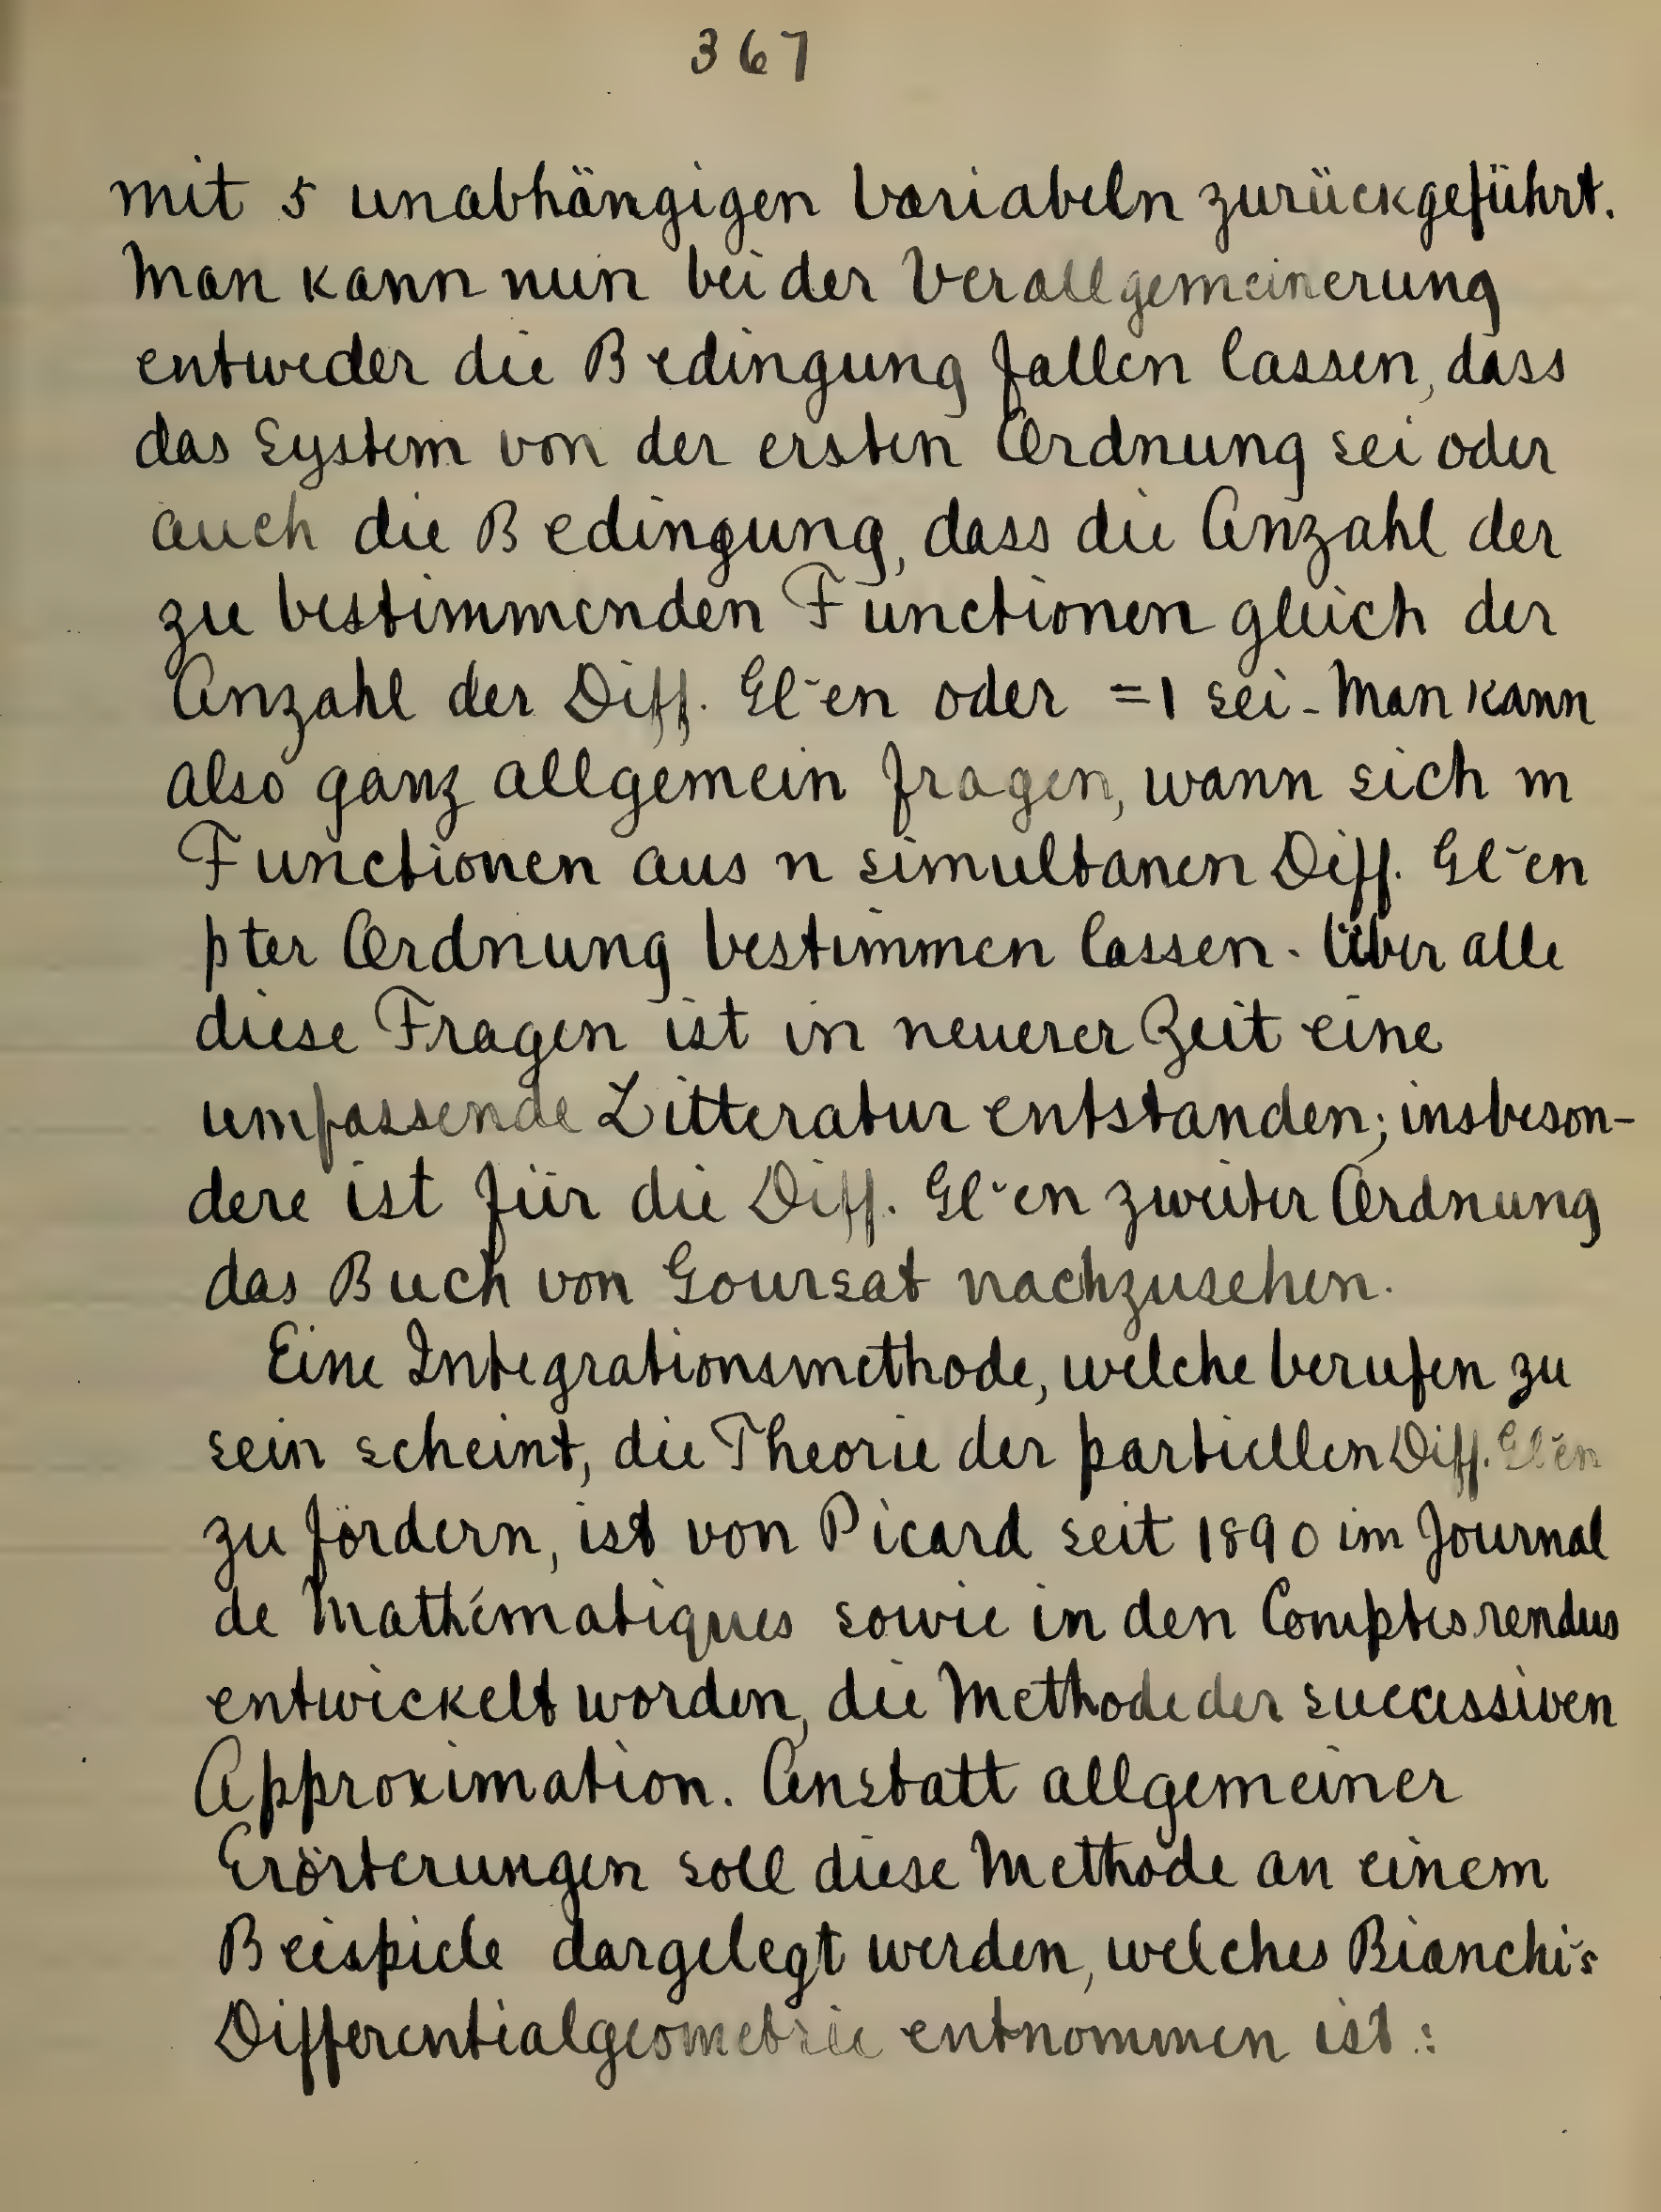 367
mit 5 unabhängigen Variabeln zurückgeführt.
Man kann nun bei der Verallgemeinerung
entweder die Bedingung fallen lassen, dass
das System von der ersten Ordnung sei oder
auch die Bedingung, dass die Anzahl der
zu bestimmenden Functionen gleich der
Anzahl der Diff. Gl-en oder =1 sei. Man kann
also ganz allgemein fragen, wann sich m
Functionen aus n simultanen Diff. Gl-en
pter Ordnung bestimmen lassen. Über alle
diese Fragen ist in neuerer Zeit eine
umfassende Litteratur entstanden; insbeson-
dere ist für die Diff. Gl-en zweiter Ordnung
das Buch von Goursat nachzusehen.
Eine Integrationsmethode, welche berufen zu
sein scheint, die Theorie der partiellen Diff. Gl-en
zu fördern, ist von Picard seit 1890 im Journal
de Mathématiques sowie in den Comptes rendus
entwickelt worden, die Methode der successiven
Approximation. Anstatt allgemeiner
Erörterungen soll diese Methode an einem
Beispiele dargelegt werden, welches Bianchi's
Differentialgeometrie entnommen ist: